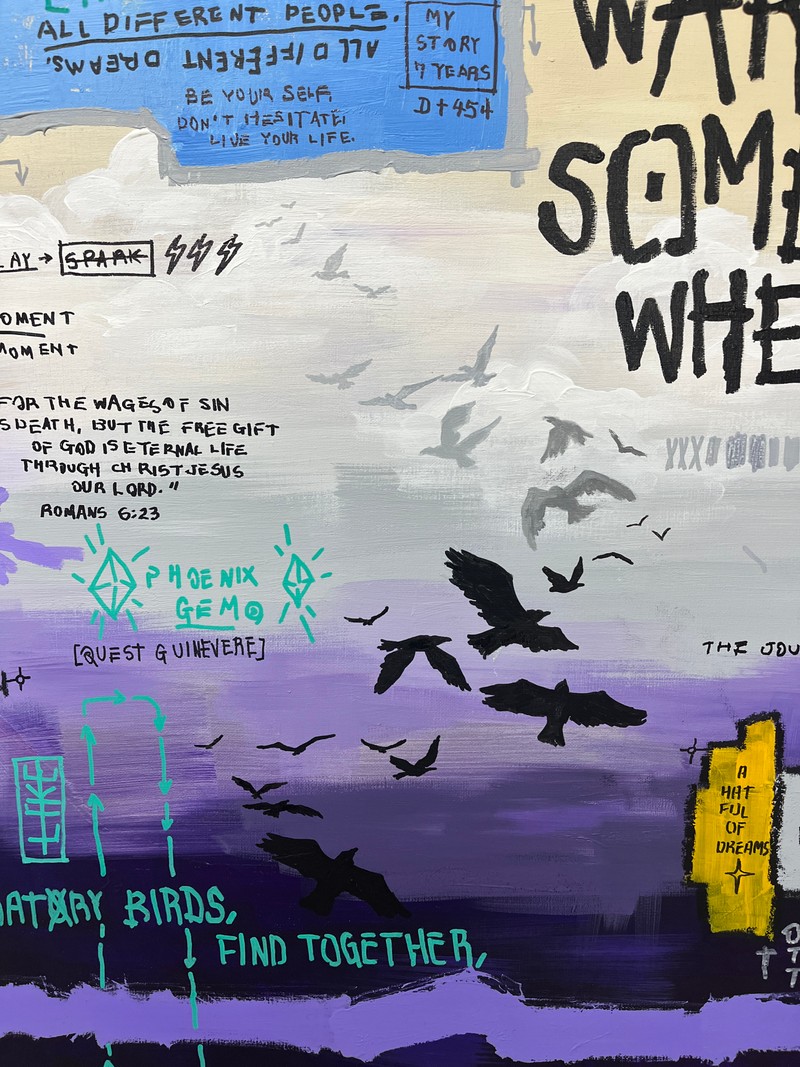 ALL DIFFERENT PEOPLE.
ALL DIFFERENT DREAMS.
BE YOUR SELF,
DON'T HESITATE!
LIVE YOUR LIFE.
MY
STORY
7 YEARS
D+454
WAR
SOME
WHE
LAY → SPARK
OMENT
MOMENT
FOR THE WAGES OF SIN
S DEATH, BUT THE FREE GIFT
OF GOD IS ETERNAL LIFE
THROUGH CHRIST JESUS
OUR LORD."
ROMANS 6:23
XXX
PHOENIX
GEM
[QUEST GUINEVERE]
THE JOU
A
HAT
FUL
OF
DREAMS
ATORY BIRDS,
FIND TOGETHER,